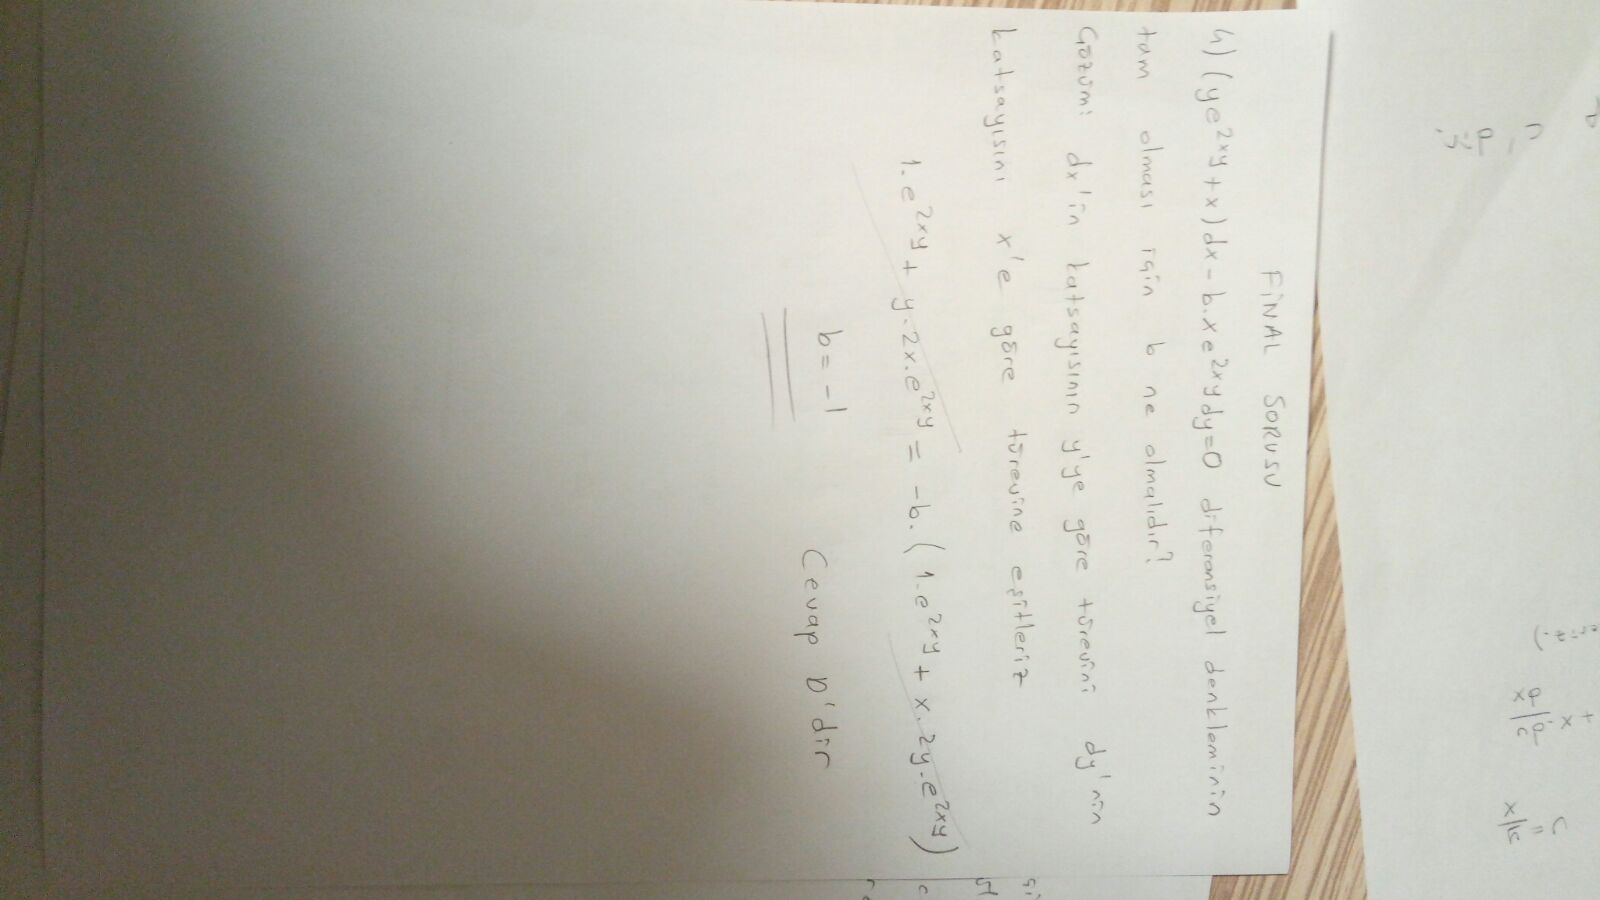 U = y/x
+ x . du/dx
eriz.)
FİNAL SORUSU
4) (ye^2xy + x) dx - b.xe^2xy dy=0 diferansiyel denkleminin
tam olması için b ne olmalıdır?
Çözüm: dx'in katsayısının y'ye göre türevini dy'nin
katsayısını x'e göre türevine eşitleriz
1.e^2xy + y.2x.e^2xy = -b.(1.e^2xy + x.2y.e^2xy)
b = -1 Cevap D'dir